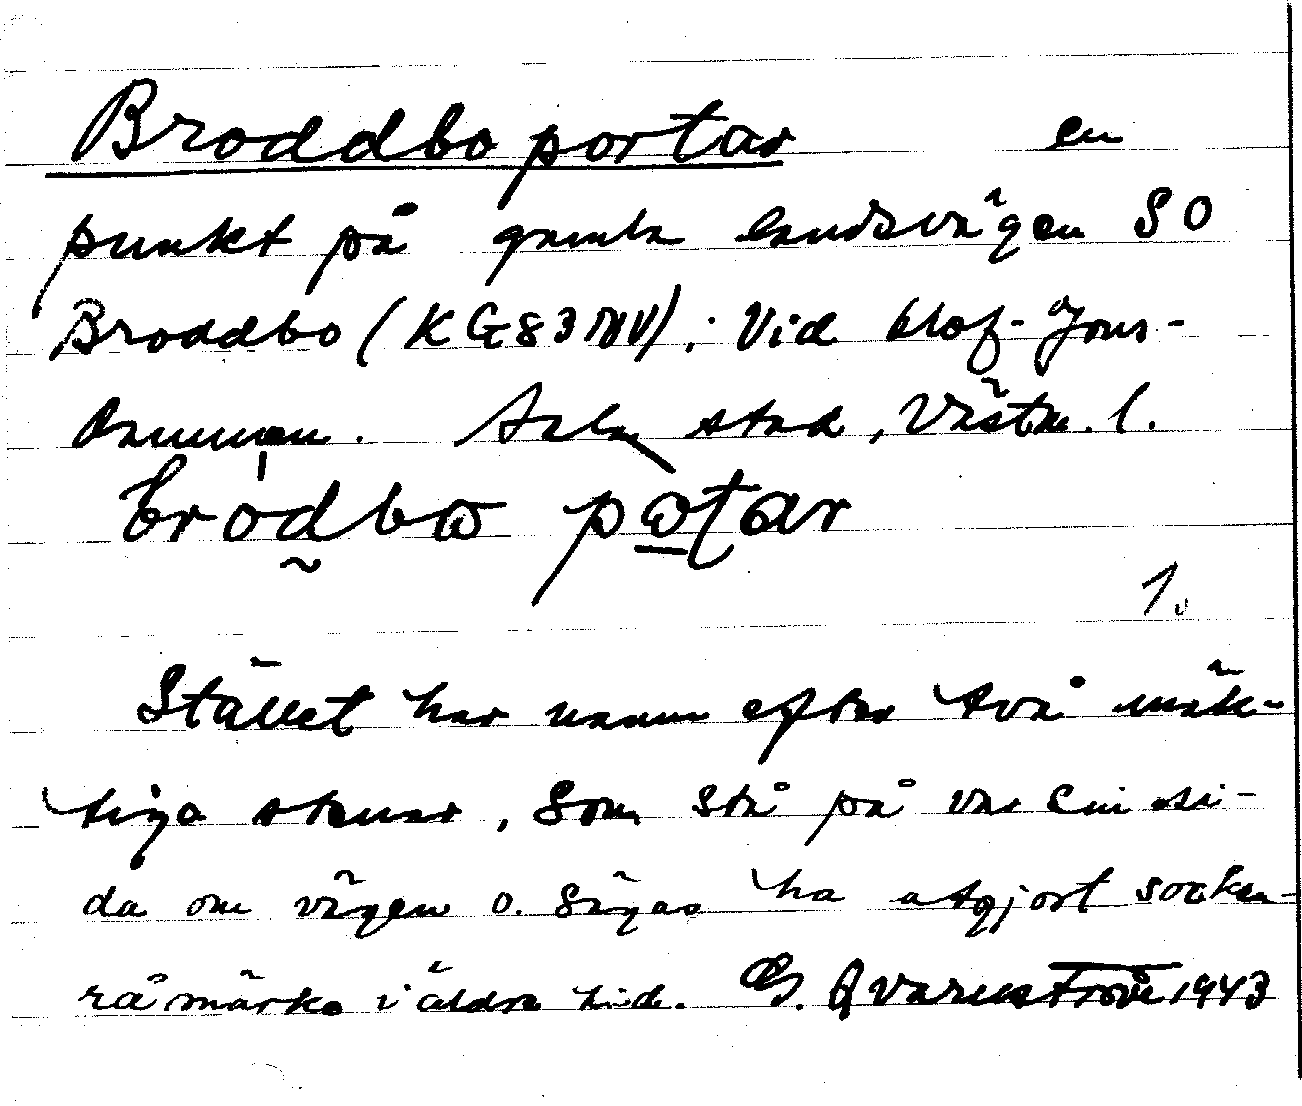 Broddbo portar en
punkt på gamla landsvägen SO
Broddbo (KG83NV). Vid Olof-Jons-
dammen. Sala stad, Västm. l.
brodbω pωtar
1.
Stället har namn efter två mäk-
tiga stenar, som stå på var sin si-
da om vägen o. sägas ha utgjort socken-
råmärke i äldre tid. G. Qvarnström 1943